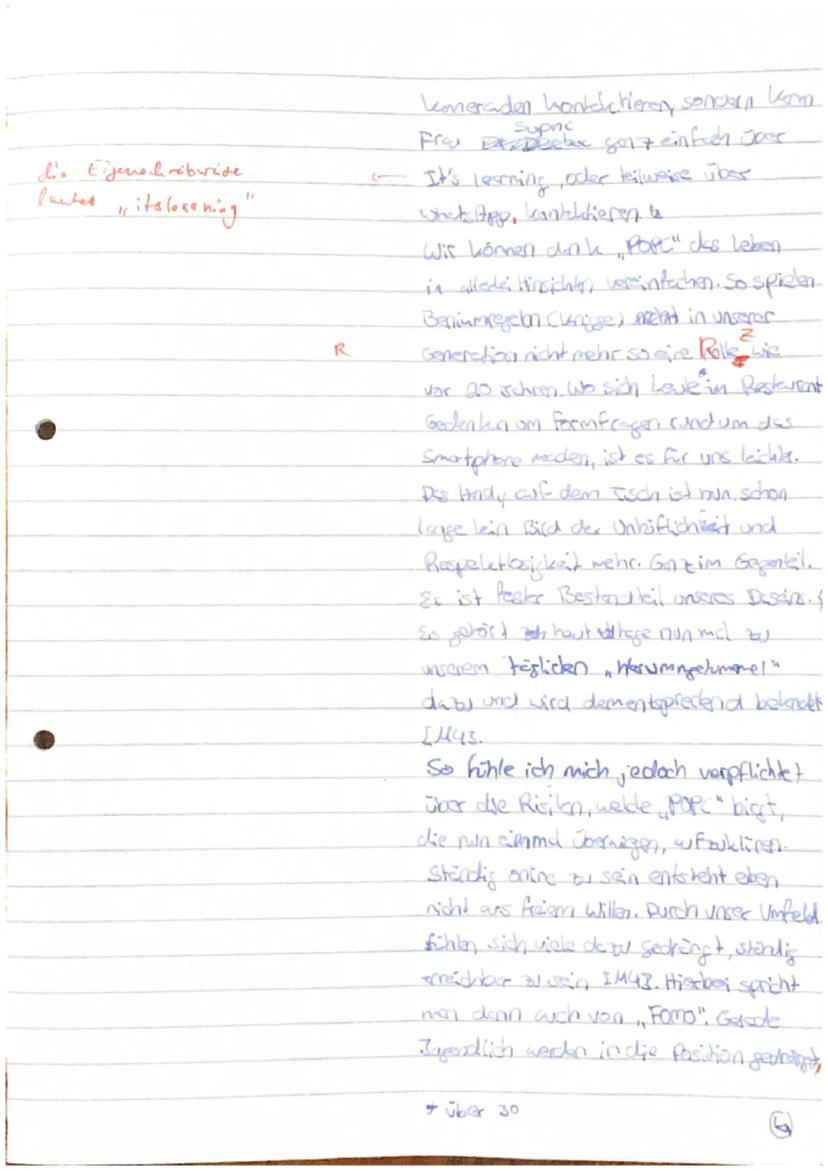 kameraden kontaktieren, sondern kann
Frau Supric ganz einfach über
die Eigenschreibweise
lautet „itslearning"
← It's learning, oder teilweise über
WhatsApp, kontaktieren.
Wir können dank „POPC" das Leben
in allerlei Hinsichten vereinfachen. So spielen
Benimmregeln (Knigge) in unserer
R
Generation nicht mehr so eine Rolle, wie
Z
vor 20 Jahren. Wo sich Leute* im Restaurant
Gedanken um Formfragen rund um das
Smartphone machen, ist es für uns leichter.
Das Handy auf dem Tisch ist nun schon
lange kein Bild der Unhöflichkeit und
Respektlosigkeit mehr. Ganz im Gegenteil.
Es ist fester Bestandteil unseres Daseins.
Es gehört heutzutage nun mal zu
unserem täglichen „Herumngetummel"
dazu und wird dementsprechend behandelt
[M4].
So fühle ich mich jedoch verpflichtet
über die Risiken, welche „POPC" birgt,
die nun einmal überwiegen, aufzuklären.
Ständig online zu sein entsteht eben
nicht aus freiem Willen. Durch unser Umfeld
fühlen sich viele dazu gedrängt, ständig
erreichbar zu sein [M4]. Hierbei spricht
man dann auch von „FOMO". Gerade
Jugendlich werden in die Position gedrängt,
* über 30